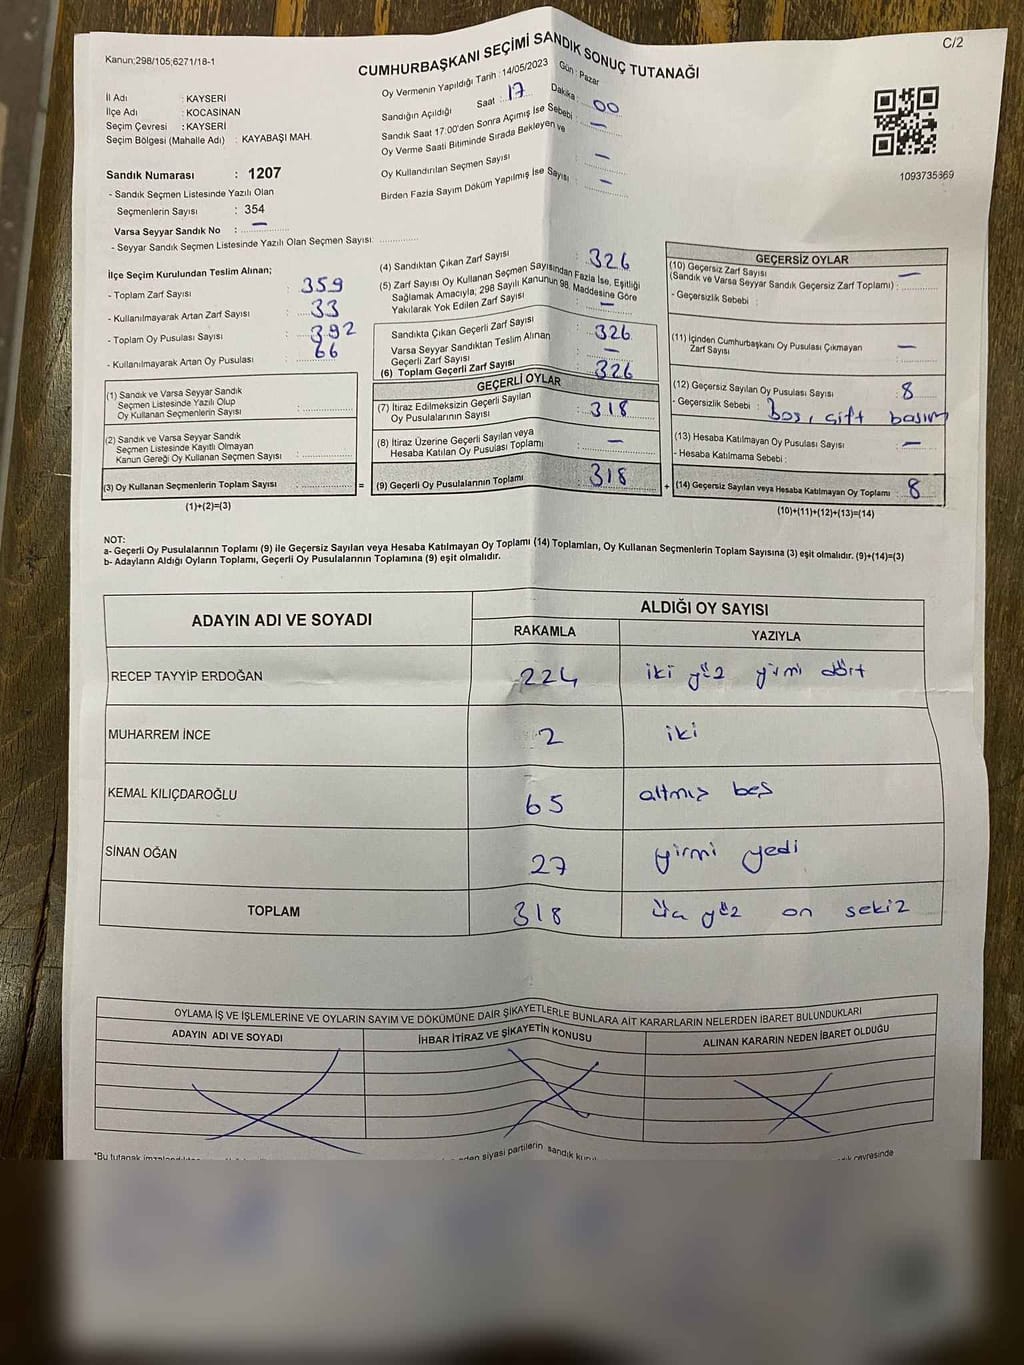 C/2
Kanun;298/105;6271/18-1
CUMHURBAŞKANI SEÇİMİ SANDIK SONUÇ TUTANAĞI
Oy Vermenin Yapıldığı Tarih : 14/05/2023 Gün : Pazar
İl Adı : KAYSERİ
İlçe Adı : KOCASİNAN
Seçim Çevresi : KAYSERİ
Seçim Bölgesi (Mahalle Adı) : KAYABAŞI MAH.
Sandığın Açıldığı Saat : 17 Dakika : 00
Sandık Saat 17:00'den Sonra Açımış İse Sebebi : –
Oy Verme Saati Bitiminde Sırada Bekleyen ve
Oy Kullandırılan Seçmen Sayısı : –
Birden Fazla Sayım Döküm Yapılmış İse Sayısı : –
1093735369
Sandık Numarası : 1207
- Sandık Seçmen Listesinde Yazılı Olan
Seçmenlerin Sayısı : 354
Varsa Seyyar Sandık No : –
- Seyyar Sandık Seçmen Listesinde Yazılı Olan Seçmen Sayısı:
İlçe Seçim Kurulundan Teslim Alınan;
- Toplam Zarf Sayısı : 359
- Kullanılmayarak Artan Zarf Sayısı : 33
- Toplam Oy Pusulası Sayısı : 392
- Kullanılmayarak Artan Oy Pusulası : 66
(1) Sandık ve Varsa Seyyar Sandık
Seçmen Listesinde Yazılı Olup
Oy Kullanan Seçmenlerin Sayısı :
(2) Sandık ve Varsa Seyyar Sandık
Seçmen Listesinde Kayıtlı Olmayan
Kanun Gereği Oy Kullanan Seçmen Sayısı :
(3) Oy Kullanan Seçmenlerin Toplam Sayısı :
(1)+(2)=(3)
(4) Sandıktan Çıkan Zarf Sayısı : 326
(5) Zarf Sayısı Oy Kullanan Seçmen Sayısından Fazla İse, Eşitliği
Sağlamak Amacıyla, 298 Sayılı Kanunun 98. Maddesine Göre
Yakılarak Yok Edilen Zarf Sayısı : –
Sandıkta Çıkan Geçerli Zarf Sayısı : 326
Varsa Seyyar Sandıktan Teslim Alınan
Geçerli Zarf Sayısı : –
(6) Toplam Geçerli Zarf Sayısı : 326
GEÇERLİ OYLAR
(7) İtiraz Edilmeksizin Geçerli Sayılan
Oy Pusulalarının Sayısı : 318
(8) İtiraz Üzerine Geçerli Sayılan veya
Hesaba Katılan Oy Pusulası Toplamı : –
= (9) Geçerli Oy Pusulalarının Toplamı : 318
GEÇERSİZ OYLAR
(10) Geçersiz Zarf Sayısı
(Sandık ve Varsa Seyyar Sandık Geçersiz Zarf Toplamı) : –
- Geçersizlik Sebebi :
(11) İçinden Cumhurbaşkanı Oy Pusulası Çıkmayan
Zarf Sayısı –
(12) Geçersiz Sayılan Oy Pusulası Sayısı : 8
- Geçersizlik Sebebi : boş, çift basım
(13) Hesaba Katılmayan Oy Pusulası Sayısı : –
- Hesaba Katılmama Sebebi :
+ (14) Geçersiz Sayılan veya Hesaba Katılmayan Oy Toplamı : 8
(10)+(11)+(12)+(13)=(14)
NOT:
a- Geçerli Oy Pusulalarının Toplamı (9) ile Geçersiz Sayılan veya Hesaba Katılmayan Oy Toplamı (14) Toplamları, Oy Kullanan Seçmenlerin Toplam Sayısına (3) eşit olmalıdır. (9)+(14)=(3)
b- Adayların Aldığı Oyların Toplamı, Geçerli Oy Pusulalarının Toplamına (9) eşit olmalıdır.
ADAYIN ADI VE SOYADI ALDIĞI OY SAYISI
RAKAMLA YAZIYLA
RECEP TAYYİP ERDOĞAN 224 iki yüz yirmi dört
MUHARREM İNCE 2 iki
KEMAL KILIÇDAROĞLU 65 altmış beş
SİNAN OĞAN 27 yirmi yedi
TOPLAM 318 üç yüz on sekiz
OYLAMA İŞ VE İŞLEMLERİNE VE OYLARIN SAYIM VE DÖKÜMÜNE DAİR ŞİKAYETLERLE BUNLARA AİT KARARLARIN NELERDEN İBARET BULUNDUKLARI
ADAYIN ADI VE SOYADI İHBAR İTİRAZ VE ŞİKAYETİN KONUSU ALINAN KARARIN NEDEN İBARET OLDUĞU
*Bu tutanak siyasi partilerin sandık çevresinde